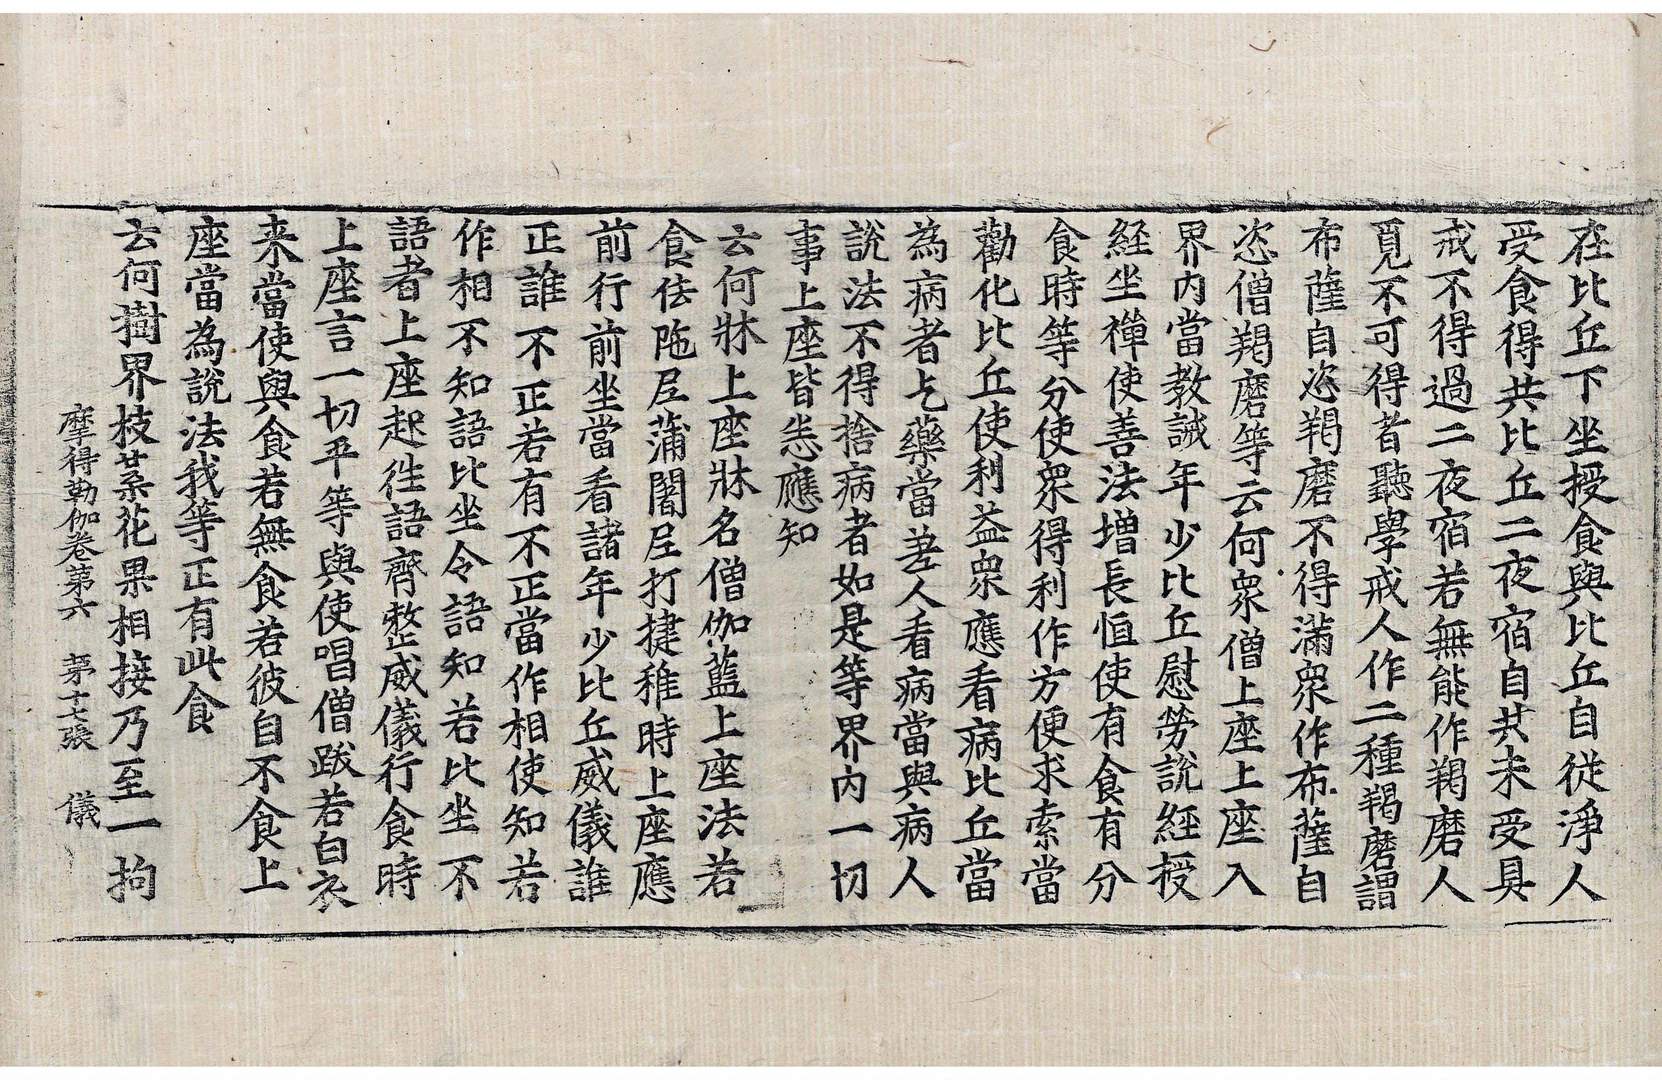 在比丘下坐授食與比丘自從淨人
受食得共比丘二夜宿自共未受具
戒不得過二夜宿若無能作羯磨人
覓不可得者聽學戒人作二種羯磨謂
布薩自恣羯磨不得滿衆作布薩自
恣僧羯磨等云何衆僧上座上座入
界內當教誡年少比丘慰勞說經授
經坐禪使善法增長恒使有食有分
食時等分使衆得利作方便求索當
勸化比丘使利益衆應看病比丘當
為病者乞藥當差人看病當與病人
說法不得捨病者如是等界內一切
事上座皆悉應知
云何牀上座牀名僧伽藍上座法若
食佉陁尼蒲闍尼打揵稚時上座應
前行前坐當看諸年少比丘威儀誰
正誰不正若有不正當作相使知若
作相不知語比坐令語知若比坐不
語者上座起往語齊整威儀行食時
上座言一切平等與使唱僧跋若白衣
来當使與食若無食若彼自不食上
座當為說法我等正有此食
云何樹界枝葉花果相接乃至一拘
摩得勒伽卷第六　第十七張　儀